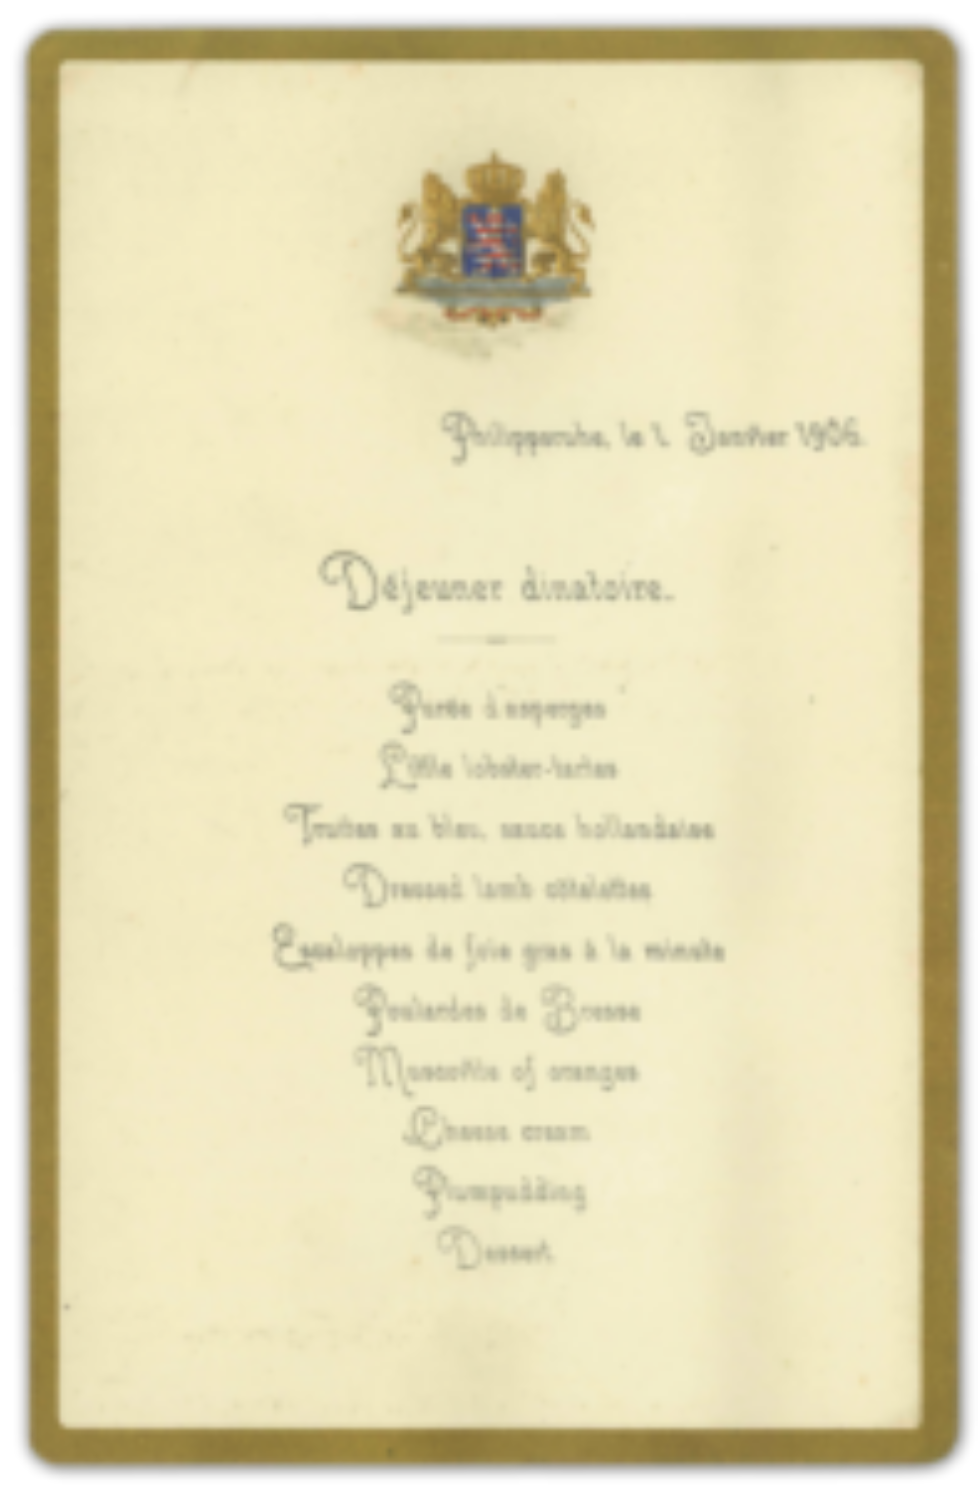 Philippsruhe, le 1. Janvier 1906.
Déjeuner dinatoire.
Purée d'asperges
Little lobster-tartes
Truites au bleu, sauce hollandaise
Dressed lamb côtelettes
Escaloppes de foie gras à la minute
Poulardes de Bresse
of oranges
Cheese cream
Plumpudding
Dessert